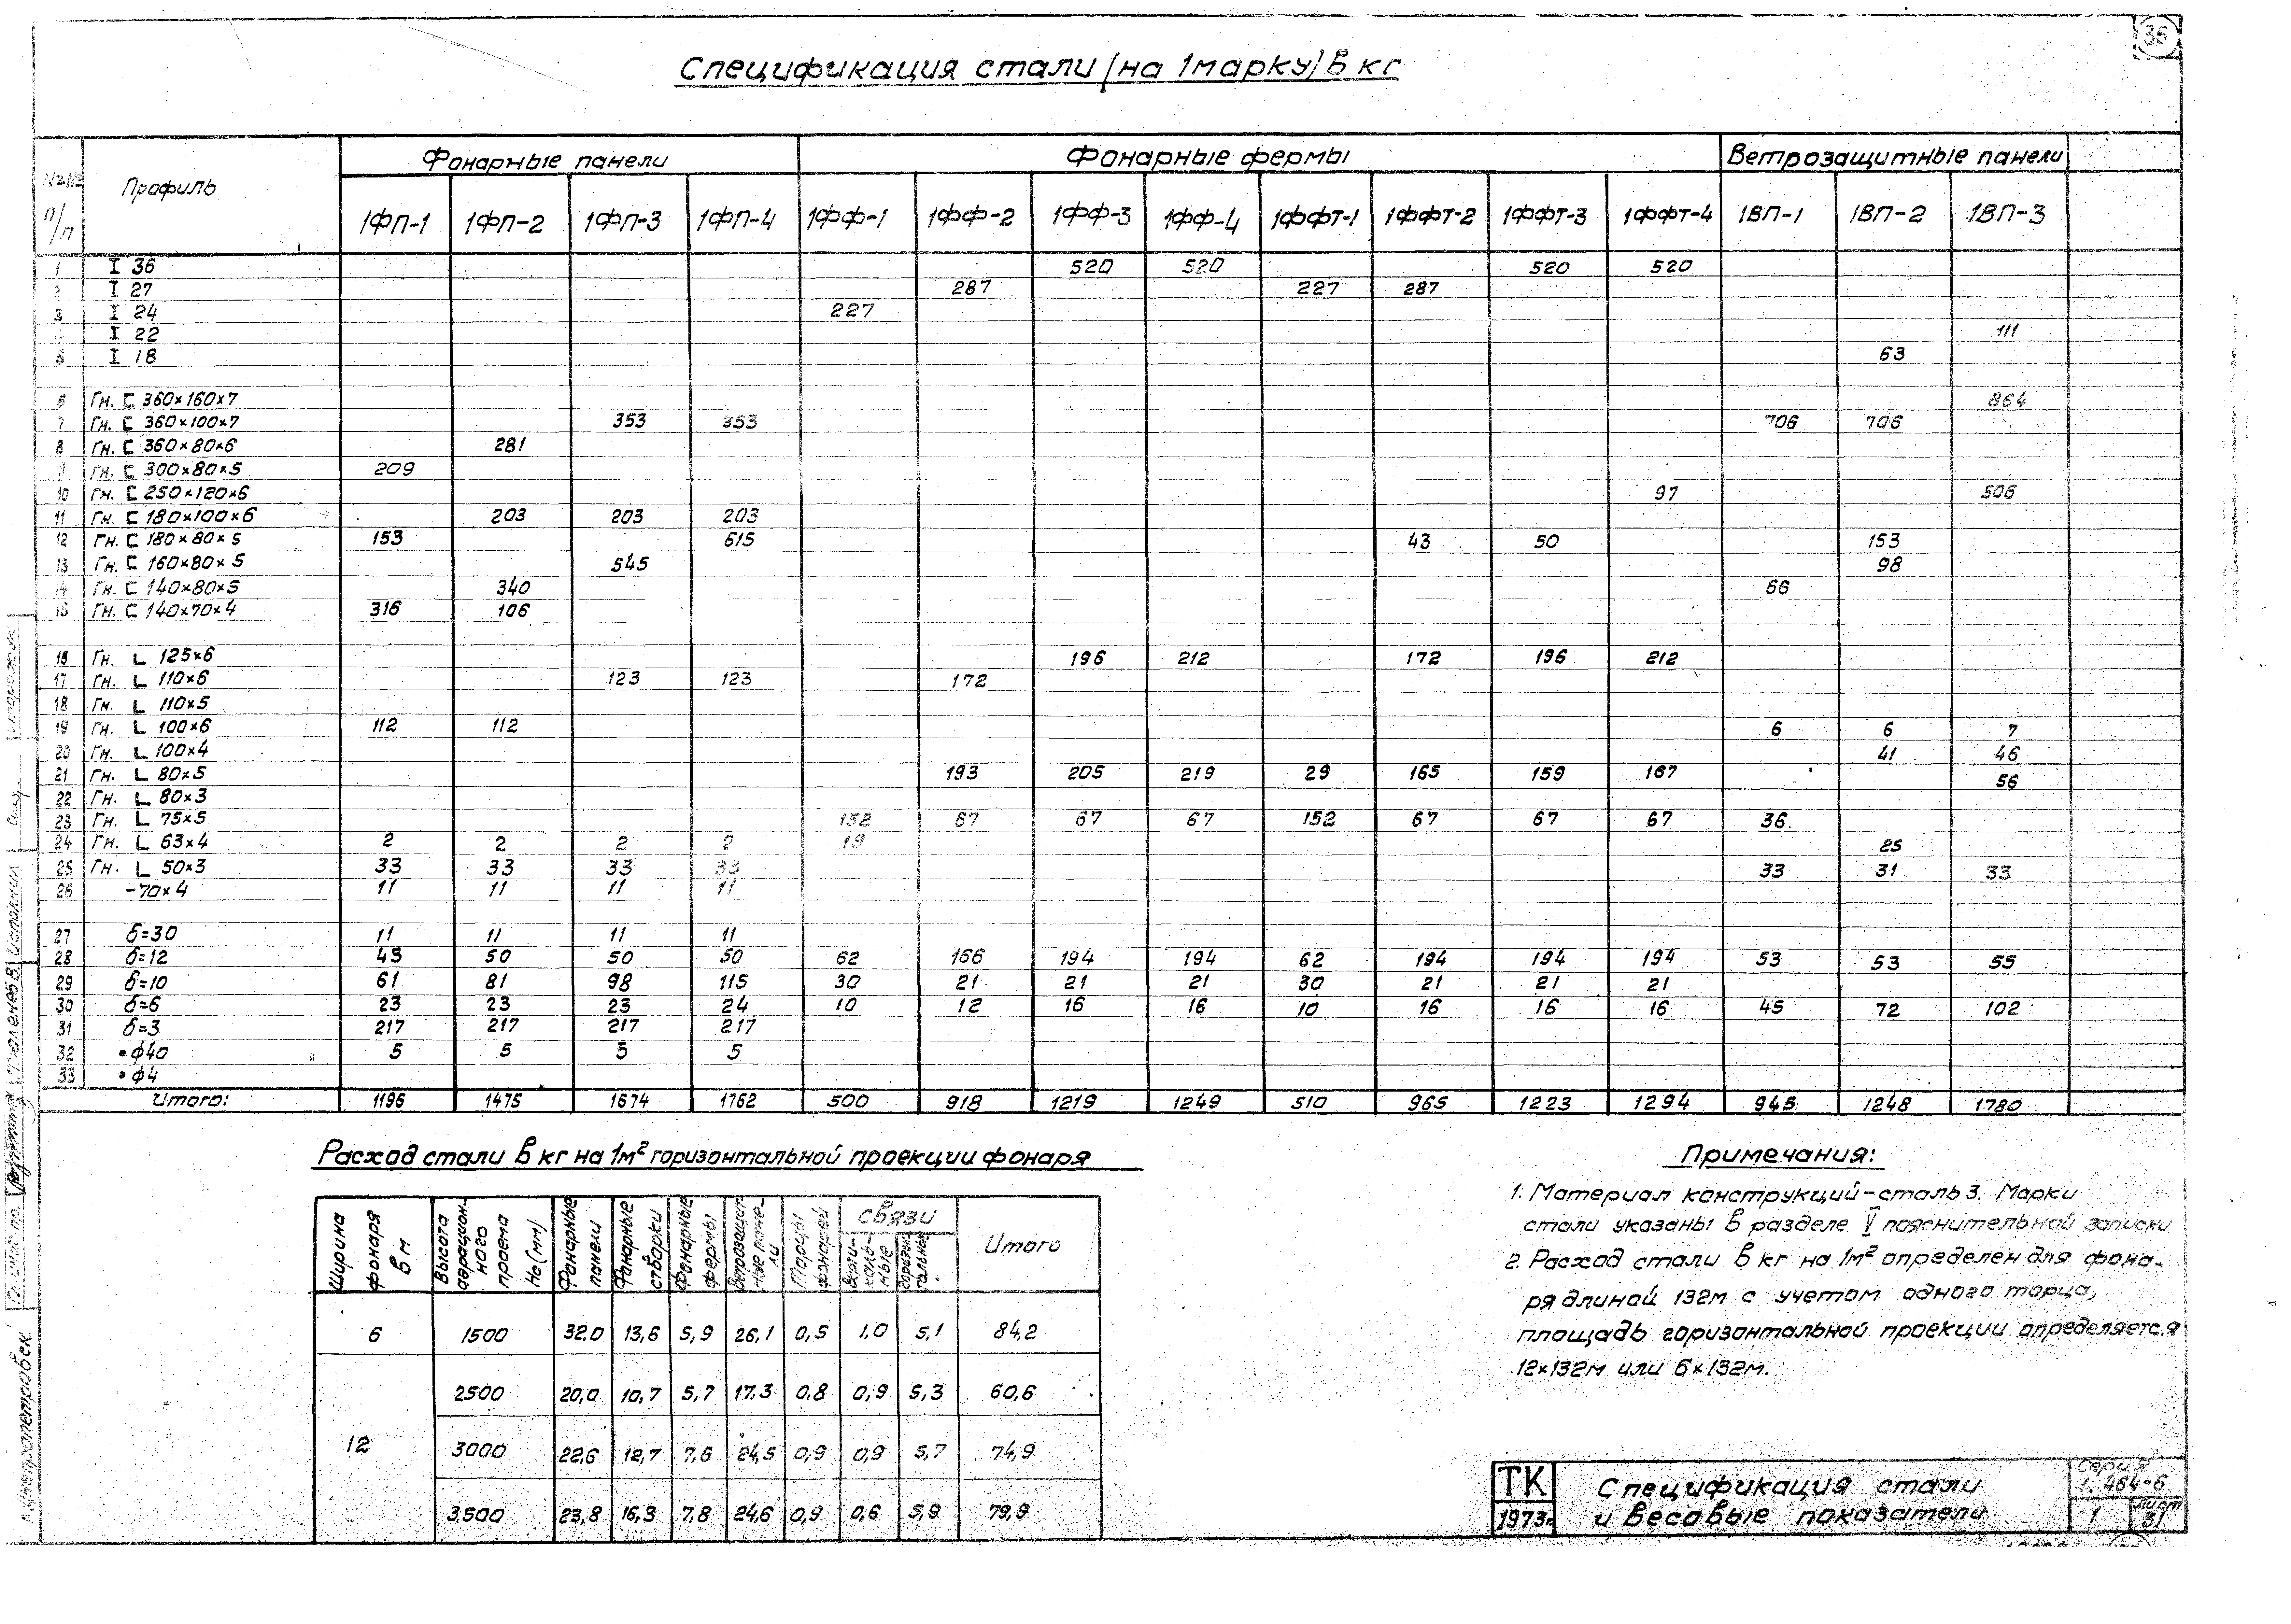 Спецификация стали (на 1 марку) в кг
№№ п/п Профиль Фонарные панели Фонарные фермы Ветрозащитные панели
1ФП-1 1ФП-2 1ФП-3 1ФП-4 1ФФ-1 1ФФ-2 1ФФ-3 1ФФ-4 1ФФТ-1 1ФФТ-2 1ФФТ-3 1ФФТ-4 1ВП-1 1ВП-2 1ВП-3
1 I 36 520 520 520 520
2 I 27 287 227 287
3 I 24 227
I 22 111
5 I 18 63
6 Гн. С 360×160×7 864
7 Гн. С 360×100×7 353 353 706 706
8 Гн. С 360×80×6 281
9 Гн. С 300×80×5 209
10 Гн. С 250×120×6 97 506
11 Гн. С 180×100×6 203 203 203
12 Гн. С 180×80×5 153 615 43 50 153
13 Гн. С 160×80×5 545 98
14 Гн. С 140×80×5 340 66
15 Гн. С 140×70×4 316 106
16 Гн. L 125×6 196 212 172 196 212
17 Гн. L 110×6 123 123 172
18 Гн. L 110×5
19 Гн. L 100×6 112 112 6 6 7
20 Гн. L 100×4 41 46
21 Гн. L 80×5 193 205 219 29 165 159 167 56
22 Гн. L 80×3
23 Гн. L 75×5 152 67 67 67 152 67 67 67 36
24 Гн. L 63×4 2 2 2 2 19 25
25 Гн. L 50×3 33 33 33 33 33 31 33
26 -70×4 11 11 11 11
27 δ=30 11 11 11 11
28 δ=12 43 50 50 50 62 166 194 194 62 194 194 194 53 53 55
29 δ=10 61 81 98 115 30 21 21 21 30 21 21 21
30 δ=6 23 23 23 24 10 12 16 16 10 16 16 16 45 72 102
31 δ=3 217 217 217 217
32 •ф40 5 5 5 5
33 •ф4
Итого: 1196 1475 1674 1762 500 918 1219 1249 510 965 1223 1294 945 1248 1780
Расход стали в кг на 1м² горизонтальной проекции фонаря
Ширина фонаря в м Высота аэрационного проема Но(мм) Фонарные панели Фонарные створки Фонарные фермы Ветрозащитные панели Торцы фонарей связи вертикальные горизонтальные Итого
6 1500 32.0 13,6 5,9 26,1 0,5 1,0 5,1 84,2
2500 20,0 10,7 5,7 17.3 0,8 0,9 5,3 60,6
12 3000 22,6 12,7 7,6 24,5 0,9 0,9 5,7 74,9
3500 23,8 16,3 7,8 24,6 0,9 0,6 5,9 79,9
Примечания:
1. Материал конструкций-сталь 3. Марки
стали указаны в разделе V пояснительной записки
2. Расход стали в кг на 1м² определен для фона-
ря длиной 132м с учетом одного торца,
площадь горизонтальной проекции определяется
12×132м или 6×132м.
ТК
1973г.
Спецификация стали
и весовые показатели
Серия
1.464-6
1
Лист
31